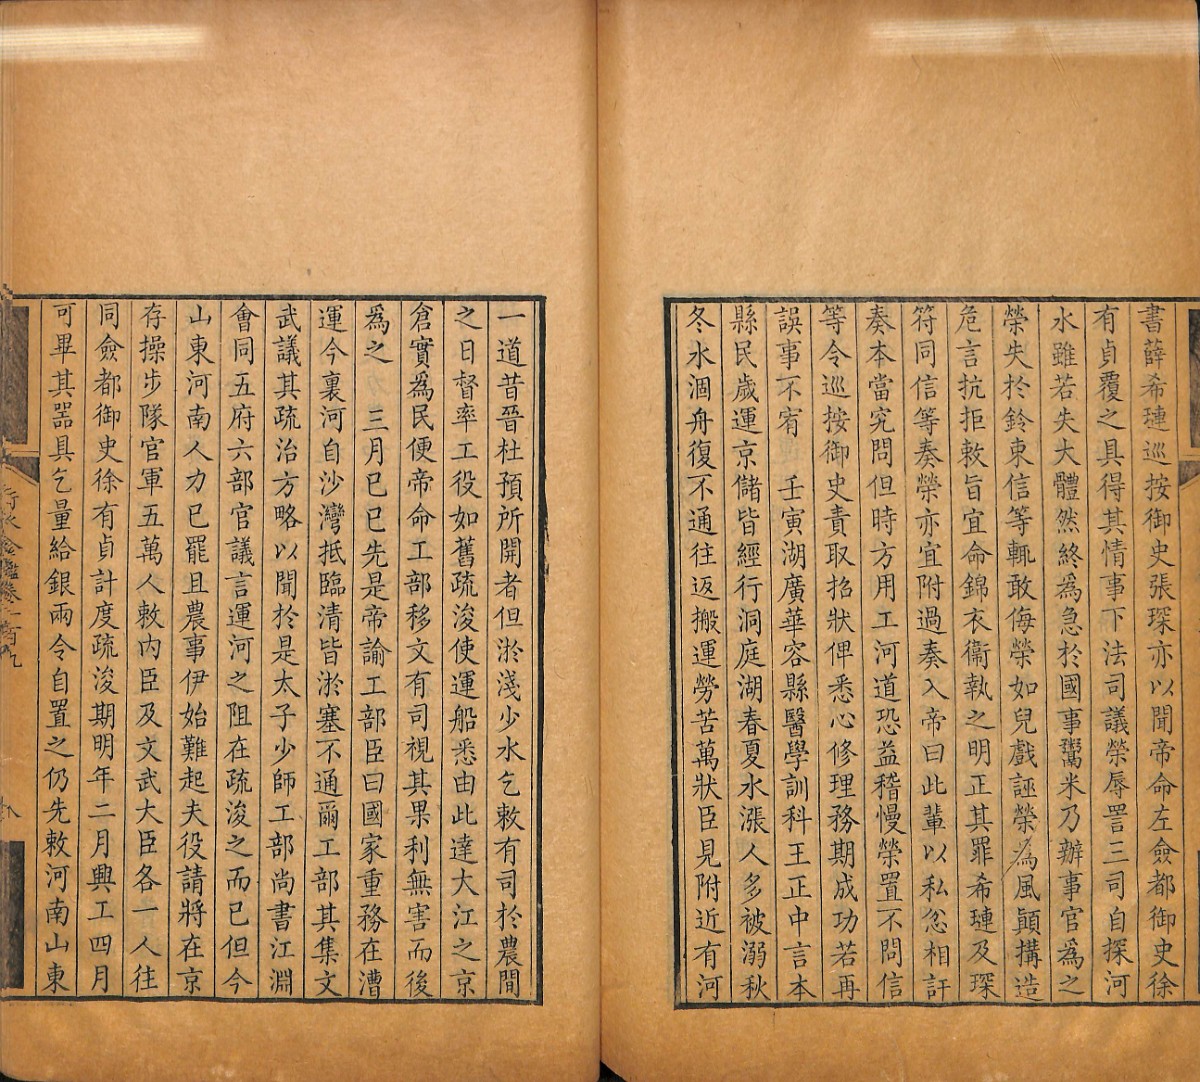 書薛希璉巡按御史張琛亦以聞帝命左僉都御史徐
有貞覆之具得其情事下法司議榮辱詈三司自探河
水雖若失大體然終爲急於國事鬻米乃辦事官爲之
榮失於鈐東信等輒敢侮榮如兒戲誣榮為風顚搆造
危言抗拒敕旨宜命錦衣衞執之明正其罪希璉及琛
符同信等奏榮亦宜附過奏入帝曰此輩以私忿相訐
奏本當究問但時方用工河道恐益稽慢榮置不問信
等令巡按御史責取招狀俾悉心修理務期成功若再
誤事不宥　壬寅湖廣華容縣醫學訓科王正中言本
縣民歲運京儲皆經行洞庭湖春夏水漲人多被溺秋
冬水涸舟復不通往返搬運勞苦萬狀臣見附近有河
一道昔晉杜預所開者但淤淺少水乞敕有司於農閒
之日督率工役如舊疏浚使運船悉由此達大江之京
倉實爲民便帝命工部移文有司視其果利無害而後
爲之　三月已巳先是帝諭工部臣曰國家重務在漕
運今裏河自沙灣抵臨清皆淤塞不通爾工部其集文
武議其疏治方略以聞於是太子少師工部尚書江淵
會同五府六部官議言運河之阻在疏浚之而已但今
山東河南人力已罷且農事伊始難起夫役請將在京
存操步隊官軍五萬人敕内臣及文武大臣各一人往
同僉都御史徐有貞計度疏浚期明年二月興工四月
可畢其器具乞量給銀兩令自置之仍先敕河南山東
行水金鑑卷一百九
八